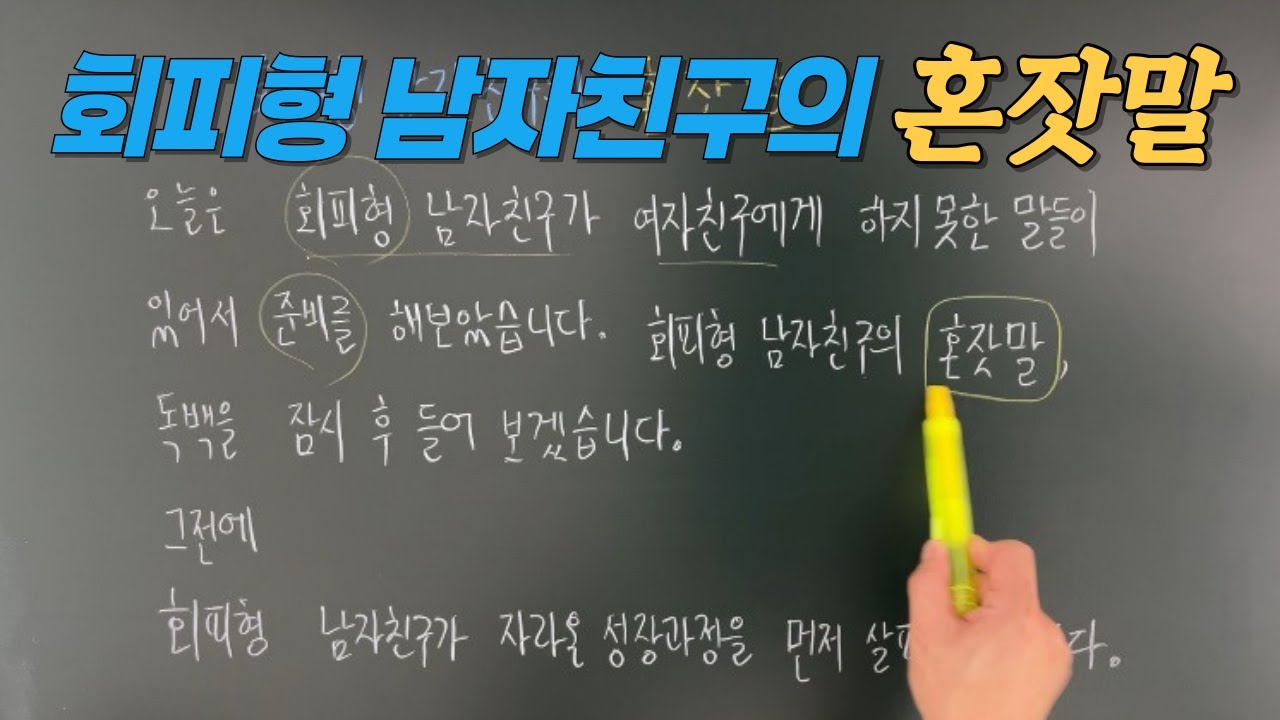 회피형 남자친구의 혼잣말
오늘은 회피형 남자친구가 여자친구에게 하지 못한 말들이
있어서 준비를 해보았습니다. 회피형 남자친구의 혼잣말,
독백을 잠시 후 들어 보겠습니다.
그전에
회피형 남자친구가 자라온 성장과정을 먼저